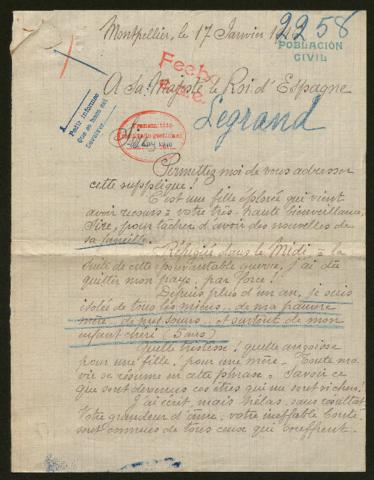 Montpellier, le 17 Janvier
2258
POBLACIÓN
CIVIL
Fecb.
A Sa Majesté le Roi d'Espagne
Pedir informes
Legrand
Permettez moi de vous adresser
cette supplique!
C'est une fille éplorée qui vient
avoir recours à votre très-haute bienveillance,
Sire, pour tâcher d'avoir des nouvelles de
sa famille.
Réfugiée dans le Midi à la
suite de cette épouvantable guerre, j'ai dû
quitter mon pays, par force!
Depuis plus d'un an, je suis
isolée de tous les miens, de ma pauvre
mère, de mes sœurs, et surtout de mon
enfant chéri (5 ans)
Quelle tristesse! quelle angoisse
pour une fille! pour une mère. Toute ma
vie se résume en cette phrase. Savoir ce
que sont devenus ces êtres qui me sont si chers!
J'ai écrit, mais hélas, sans résultat
Votre grandeur d'âme, votre ineffable bonté,
sont connues de tous ceux qui souffrent.